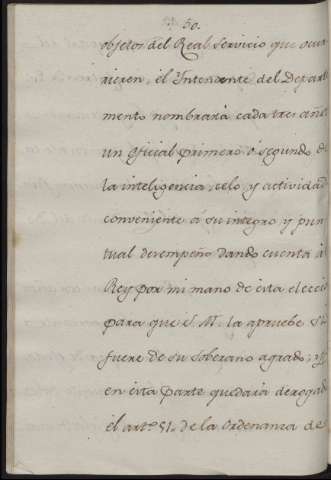 50.
objetos del Real Servicio que ocur
rieren, el Yntendente del Depart
mento nombrará cada tres años
un Oficial primero ó segundo de
la inteligencia, celo, y actividad
conveniente á su integro y pun
tual desempeño dando cuenta á
Rey por mi mano de esta elecci
para que S. M. la apruebe si
fuere de su Soberano agrado; y
en esta parte quedará derogad
el artº. 51. de la Ordenanza de